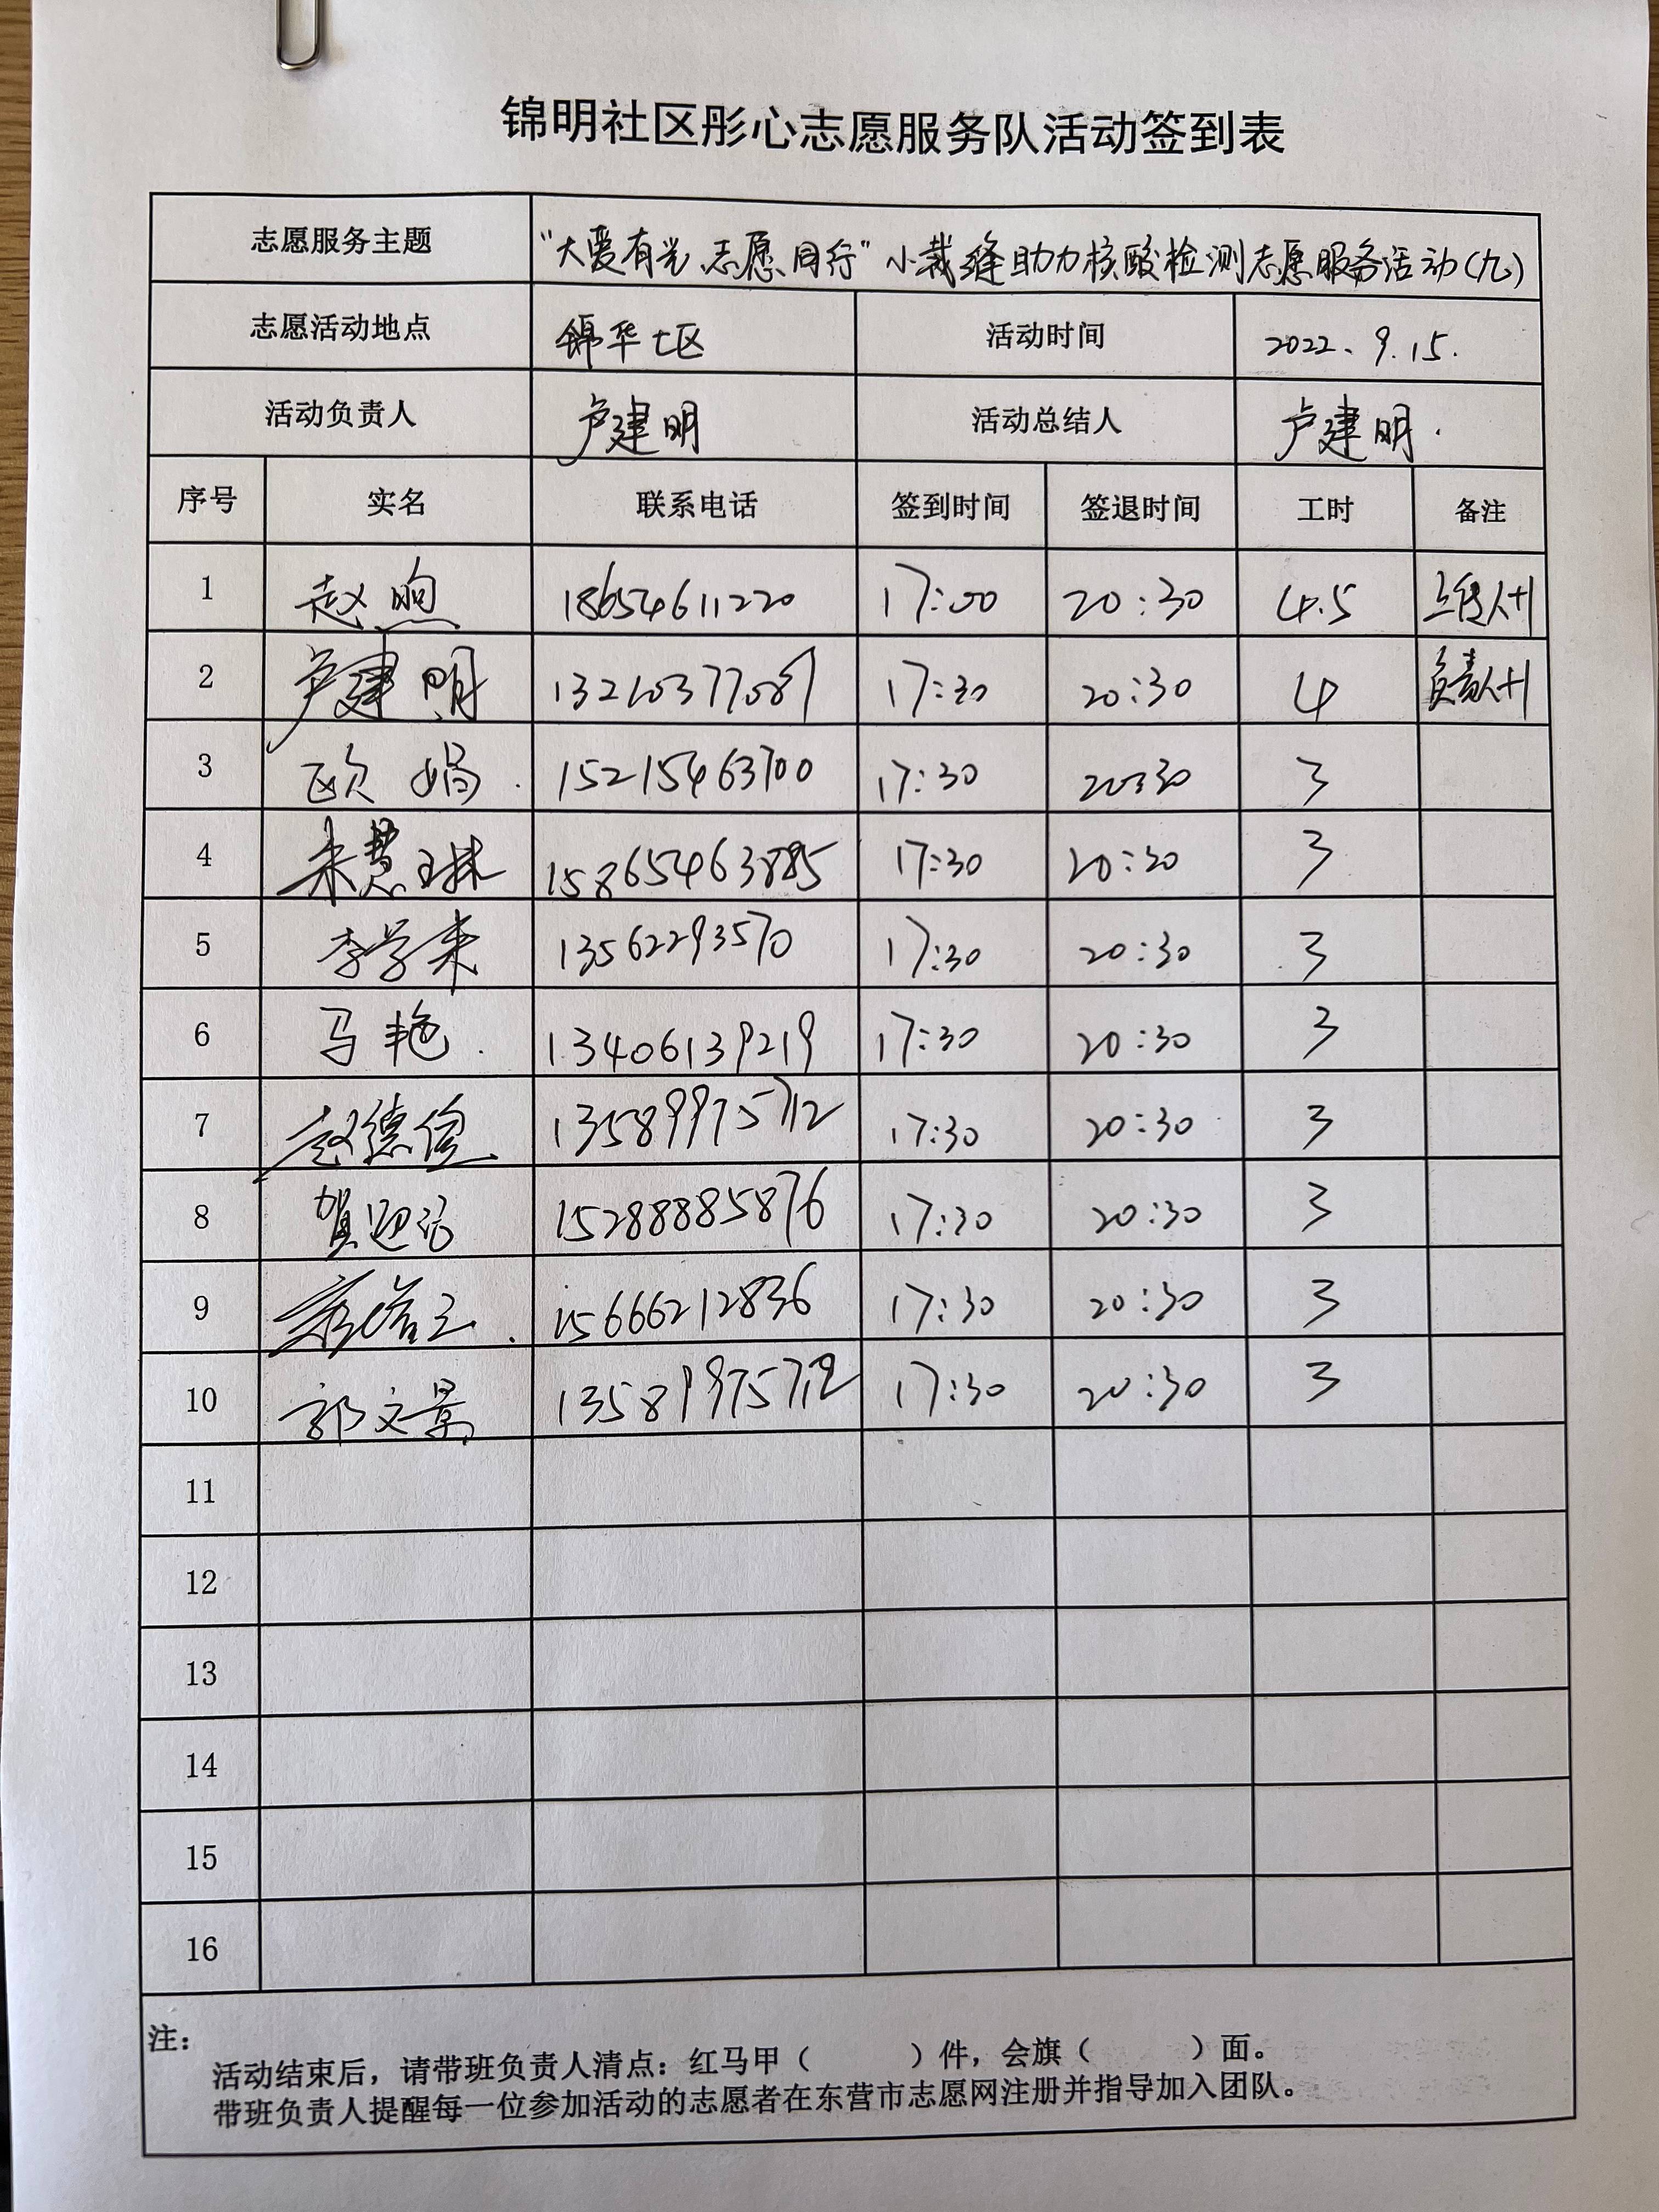 锦明社区彤心志愿服务队活动签到表
志愿服务主题 "大爱有光、志愿同行"小裁缝助力核酸检测志愿服务活动(九)
志愿活动地点 锦华社区 活动时间 2022、9.15.
活动负责人 卢建明 活动总结人 卢建明.
序号 实名 联系电话 签到时间 签退时间 工时 备注
1 赵煦 18654611220 17:00 20:30 4.5 宣传人+1
2 卢建明 13210377089 17:30 20:30 4 负责人+1
3 欧娟. 15215463700 17:30 20:30 3
4 朱慧琳 15865463885 17:30 20:30 3
5 李学来 13562293570 17:30 20:30 3
6 马艳. 13406139219 17:30 20:30 3
7 赵德俭 13589975712 17:30 20:30 3
8 贺迎 15288885876 17:30 20:30 3
9 15666212836 17:30 20:30 3
10 郭文景 13589975712 17:30 20:30 3
11
12
13
14
15
16
注:
活动结束后，请带班负责人清点：红马甲（ ）件，会旗（ ）面。
带班负责人提醒每一位参加活动的志愿者在东营市志愿网注册并指导加入团队。